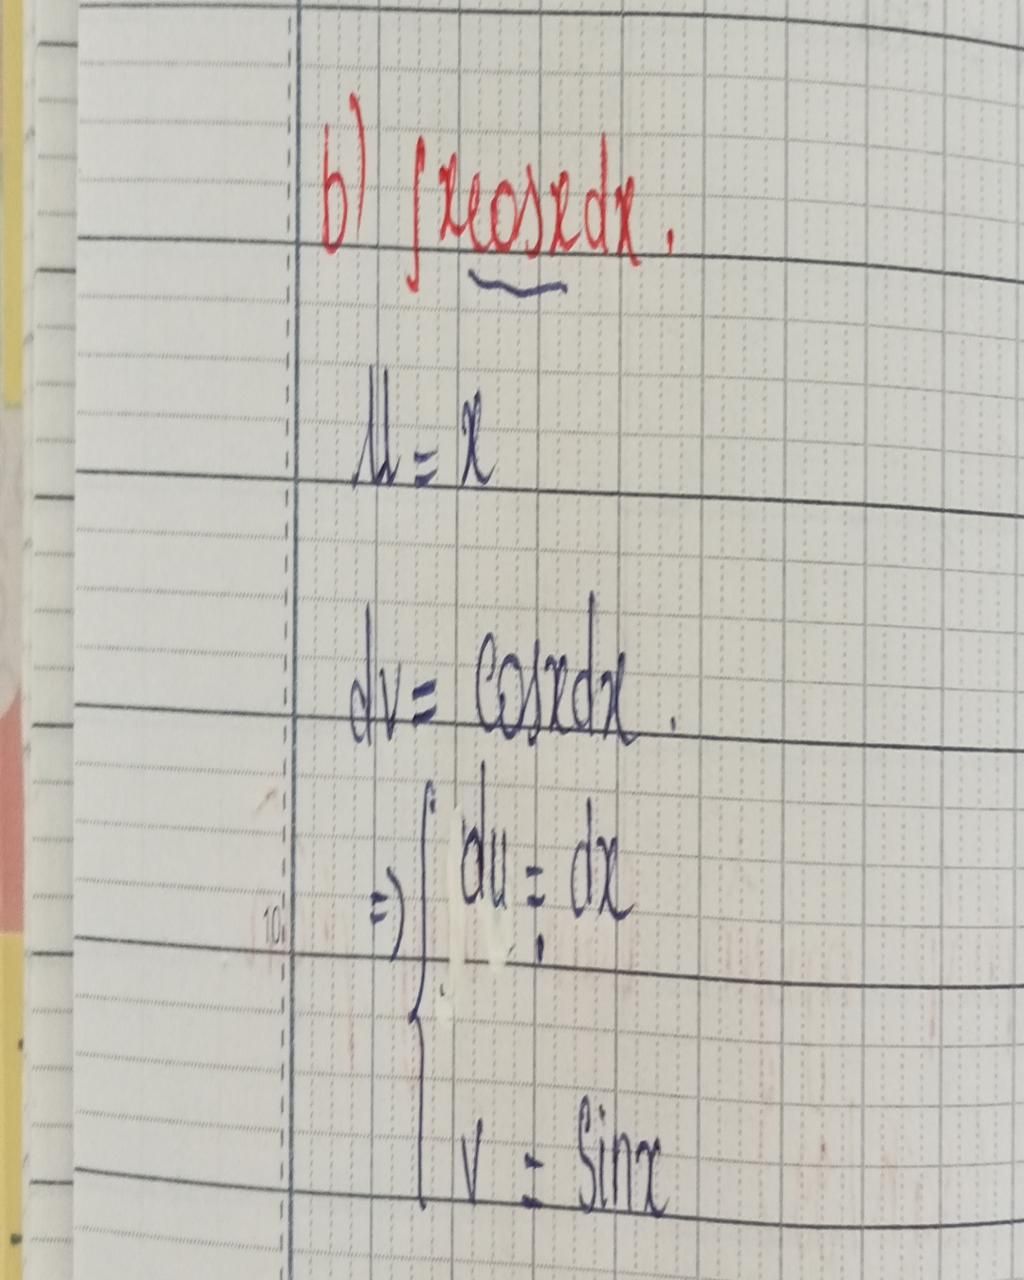 b) ∫xcosxdx.
u = x
dv = cosxdx.
=> { du = dx
10
v = sinx